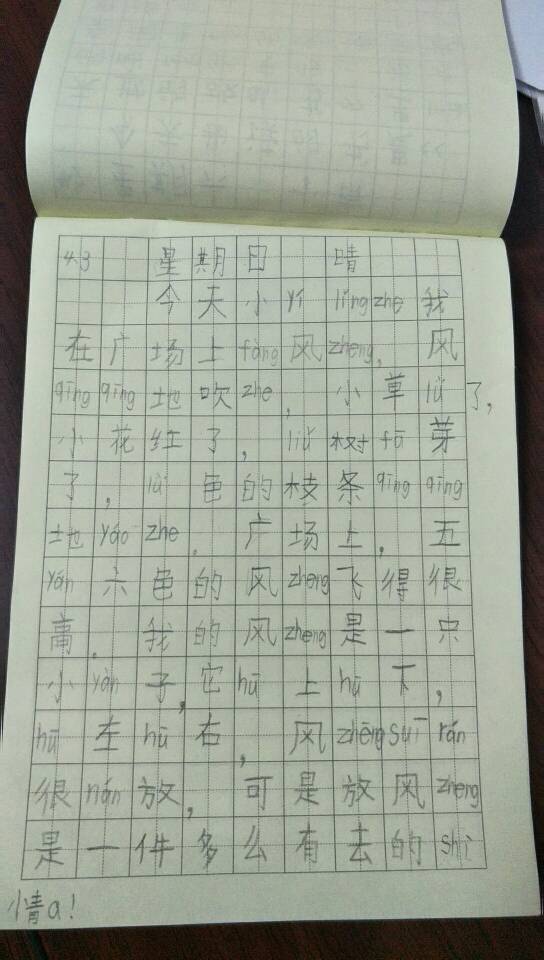 4.3 星期日 晴
今天小yí lǐng zhe我
在广场上fàng风zheng。风
qīng qīng地吹zhe，小草lǜ了，
小花红了，liǔ树fā芽
了，lǜ色的枝条qīng qīng
地yáo zhe。广场上，五
yán六色的风zheng飞得很
高。我的风zheng是一只
小yàn子，它hū上hū下，
hū左hū右，风zhēng suī rán
很nán放，可是放风zheng
是一件多么有去的shì
情a！